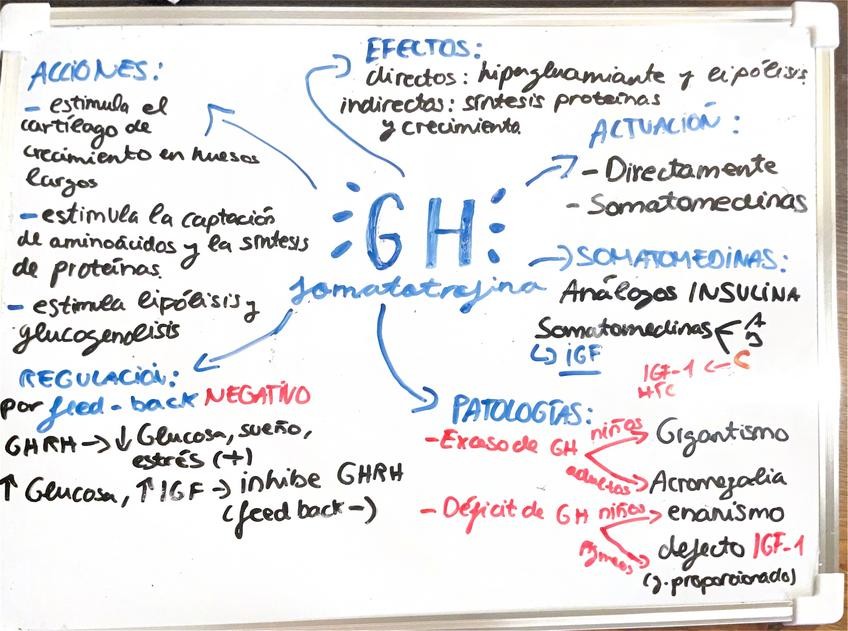 ACCIONES:
- estimula el
cartílago de
crecimiento en huesos
largos
- estimula la captación
de aminoácidos y la síntesis
de proteínas
- estimula lipólisis y
glucogenolisis
EFECTOS:
directos: hipergluamiante y lipólisis
indirectos: síntesis proteínas
y crecimiento
ACTUACIÓN:
- Directamente
- Somatomedinas
GH
somatotropina
SOMATOMEDINAS:
Análogos INSULINA
Somatomedinas
A
B
C
↳ IGF
IGF-1 ←
REGULACIÓN:
por feed-back NEGATIVO
GHRH → ↓ Glucosa, sueño,
estrés (+)
↑ Glucosa, ↑ IGF → inhibe GHRH
(feed back -)
PATOLOGÍAS:
- Exceso de GH niños Gigantismo
adultos Acromegalia
- Déficit de GH niños enanismo
Pigmeos defecto IGF-1
(g. proporcionado)